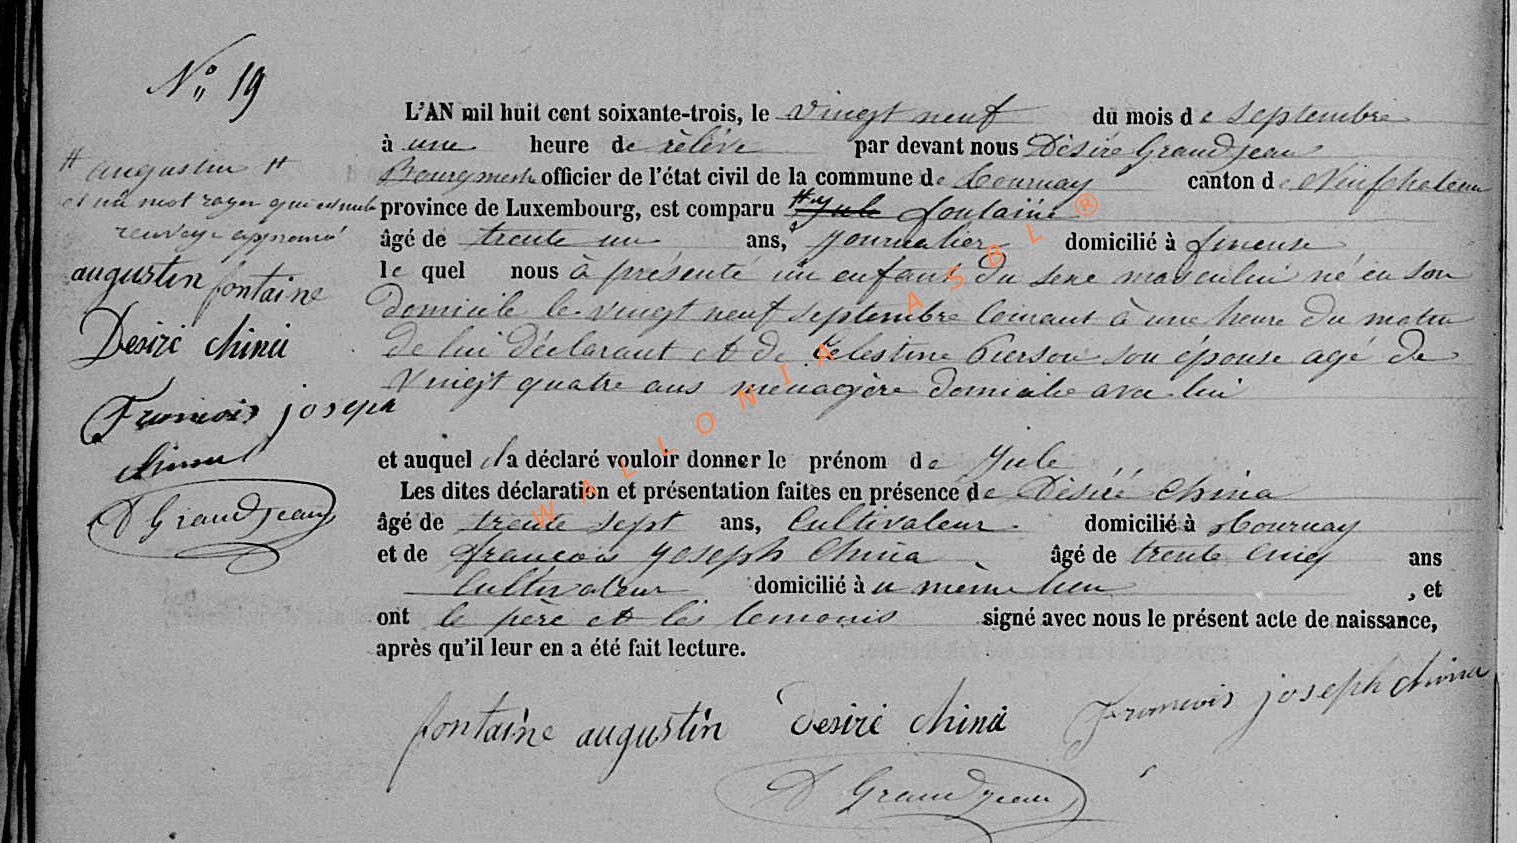 N° 19
L'AN mil huit cent soixante-trois, le vingt neuf du mois de septembre
à une heure de rélévé par devant nous Désiré Grandjean
Bourgmestre officier de l'état civil de la commune de Tournay canton de Neufchateau
province de Luxembourg, est comparu # Jule fontaine
âgé de trente un ans, journalier domicilié à fineuse
le quel nous à présenté un enfant du sexe masculin né en son
domicile le vingt neuf septembre courant à une heure du matin
de lui déclarant et de Célestine Pierson son épouse agé de
Vingt quatre ans ménagère domicilié avec lui
et auquel il a déclaré vouloir donner le prénom de Jule
Les dites déclaration et présentation faites en présence de Désiré China
âgé de trente sept ans, Cultivateur domicilié à Tournay
et de françois Joseph China âgé de trente cinq ans
Cultivateur domicilié à u même lieu , et
ont le père et les temouis signé avec nous le présent acte de naissance,
après qu'il leur en a été fait lecture.
# augustin #
et un mot rayer qui est nule
renvoye approuvé
augustin fontaine
Desiré China
François joseph
China
D Grandjean
fontaine augustin Desiré China François joseph China
D Grandjean
WALLONIA ASBL ®